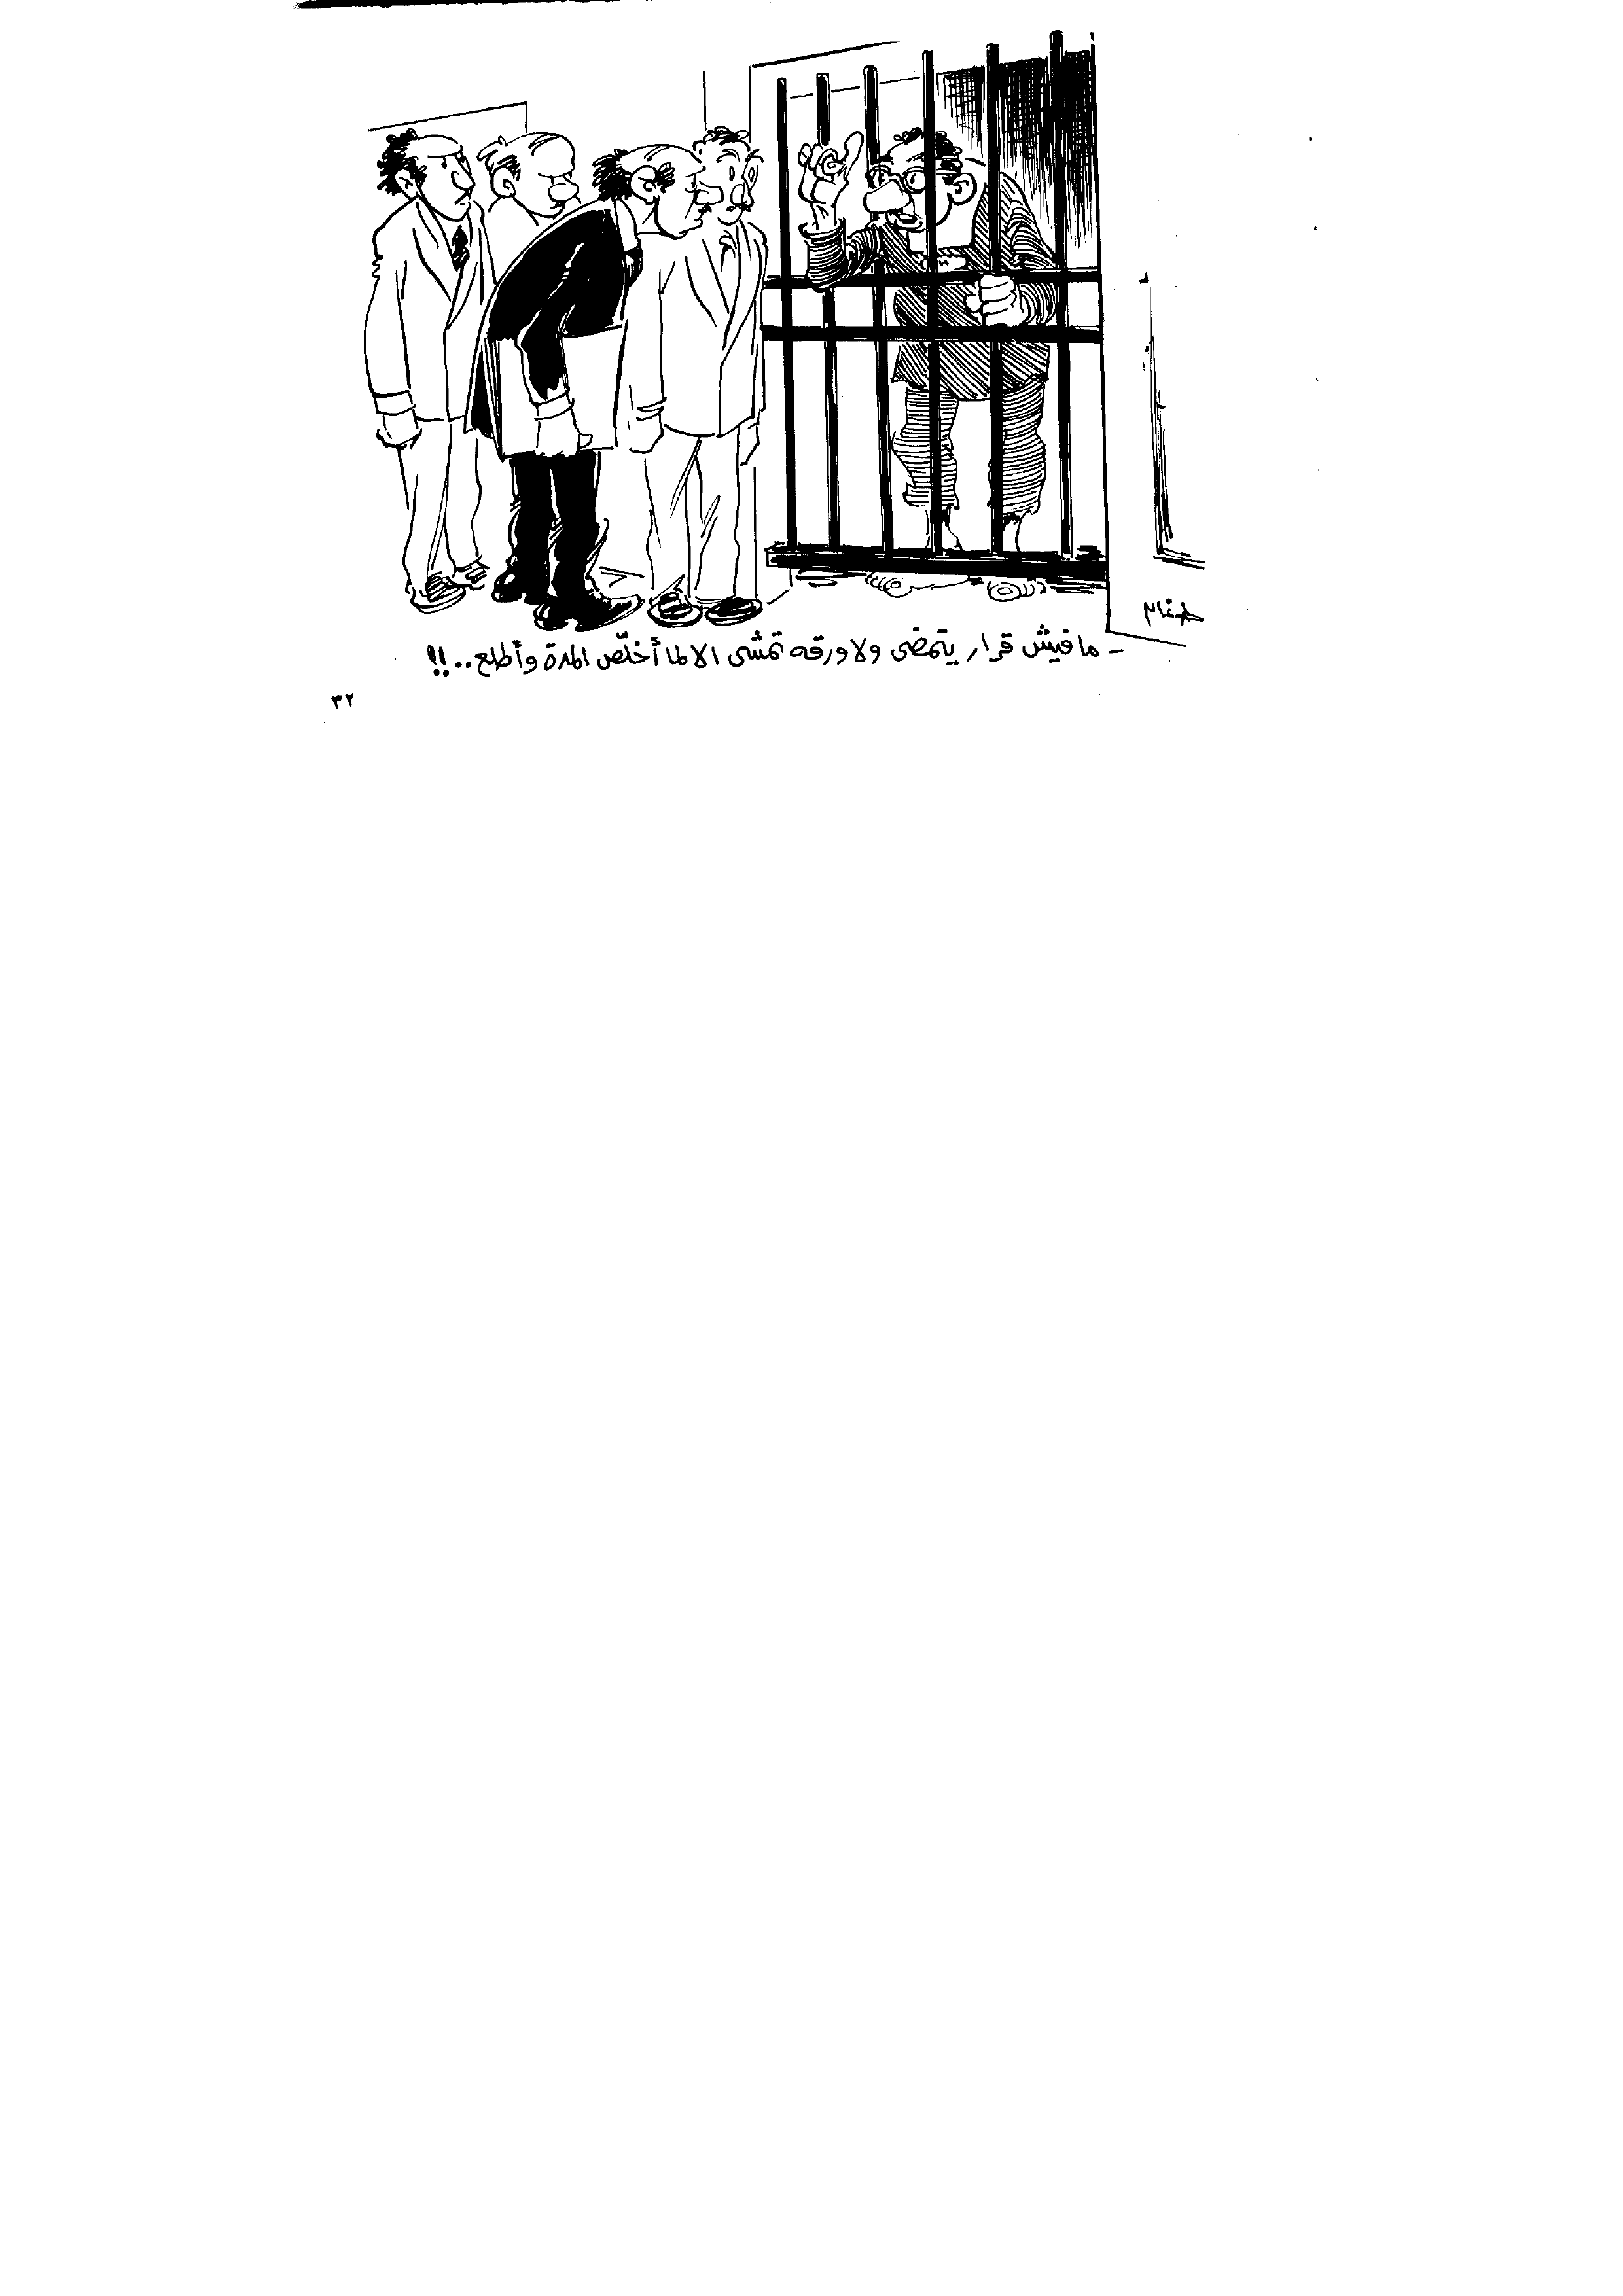 - مافيش قرار يتمضى ولا ورقه تمشى الا لما أخلّص المدة وأطلع..!!
٣٢